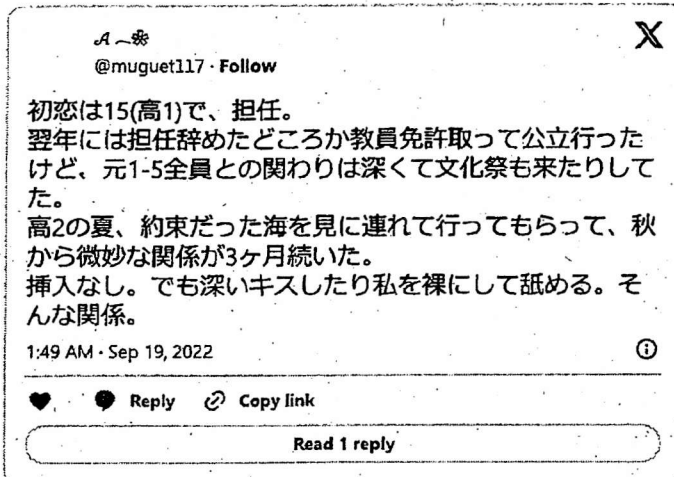 A
@muguet117 · Follow
初恋は15(高1)で、担任。
翌年には担任辞めたどころか教員免許取って公立行った
けど、元1-5全員との関わりは深くて文化祭も来たりして
た。
高2の夏、約束だった海を見に連れて行ってもらって、秋
から微妙な関係が3ヶ月続いた。
挿入なし。でも深いキスしたり私を裸にして舐める。そ
んな関係。
1:49 AM · Sep 19, 2022
Reply Copy link
Read 1 reply